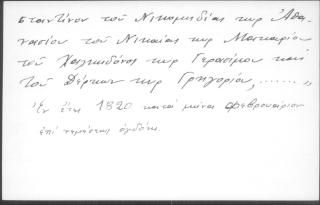 σταντίνου τοῦ Νικομηδίας κυρ Ἀθα-
νασίου τοῦ Νικαίας κυρ Μακαρίου
τοῦ Χαλκηδόνος κυρ Γερασίμου καὶ
τοῦ Δέρκων κυρ Γρηγορίου, ........ »
Ἐν ἔτει 1820 κατά μῆνα Φεβρουαρίου
ἐπί νεμήσεως ὀγδόης.